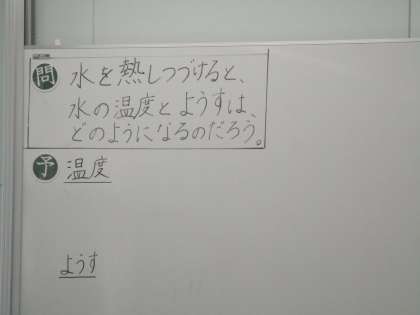 問 水を熱しつづけると、
水の温度とようすは、
どのようになるのだろう。
予 温度
ようす